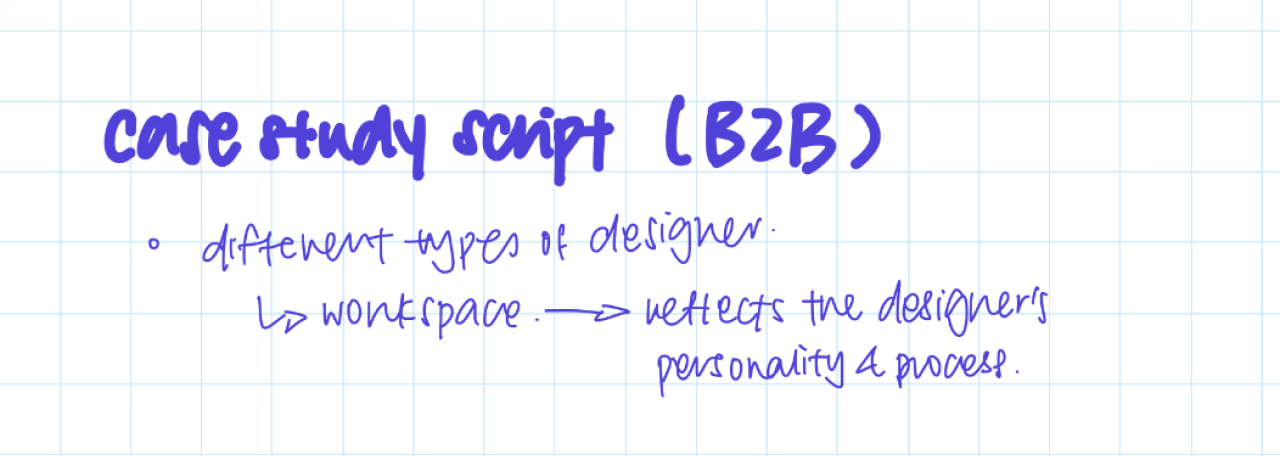 case study script (B2B)
◦ different types of designer.
↳ workspace. → reflects the designer's
personality & process.